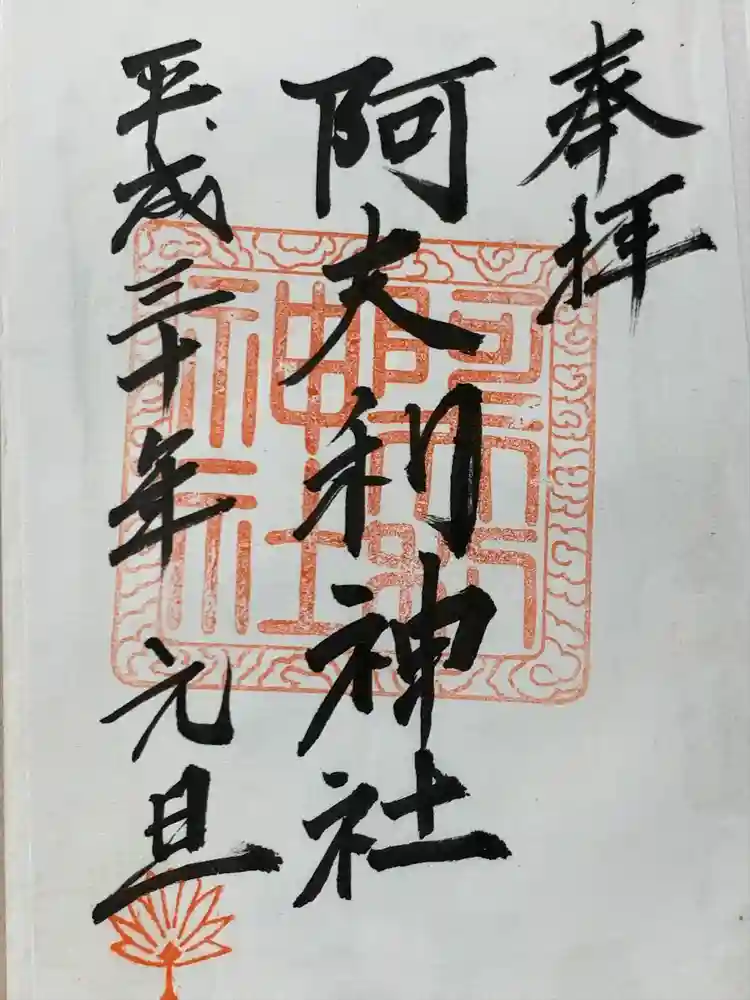 奉拝
阿夫利神社
平成三十年元旦
阿夫利神社